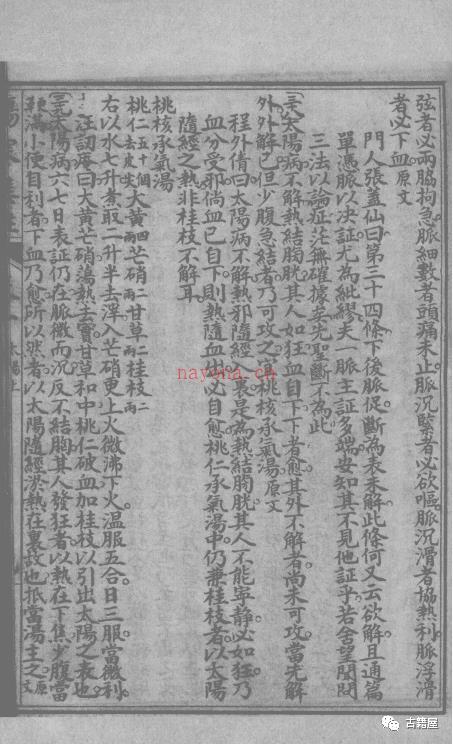 弦者必兩脇拘急脈細數者頭痛未止脈沉緊者必欲嘔脈沉滑者協熱利脈浮滑
者必下血原文
門人張蓋仙曰第三十四條下後脈促斷為表未解此條何又云欲解且通篇
單憑脈以決証尤為紕繆夫一脈主証多端安知其不見他証乎若舍望聞問
三法以論症茫無確據妄先聖斷不為此
太陽病不解熱結膀胱其人如狂血自下下者愈其外不解者尚未可攻當先解
外外解已但少腹急結者乃可攻之宜桃核承氣湯原文
程外倩曰太陽病不解熱邪隨經入裏是為熱結膀胱其人不能寧靜必如狂乃
血分受邪倘血已自下則熱隨血出必自愈桃仁承氣湯中仍兼桂枝者以太陽
隨經之熱非桂枝不解耳
桃核承氣湯
桃仁五十個去皮尖大黃四兩芒硝二兩甘草二兩桂枝二兩
右以水七升煮取二升半去滓入芒硝更上火微沸下火溫服五合日三服當微利
汪訒庵曰大黃芒硝蕩熱去實甘草和中桃仁破血加桂枝以引出太陽之表也
太陽病六七日表証仍在脈微而沉反不結胸其人發狂者以熱在下焦少腹當
鞕滿小便自利者下血乃愈所以然者以太陽隨經瘀熱在裏故也抵當湯主之原文
太陽上
nayona.cn
古籍屋